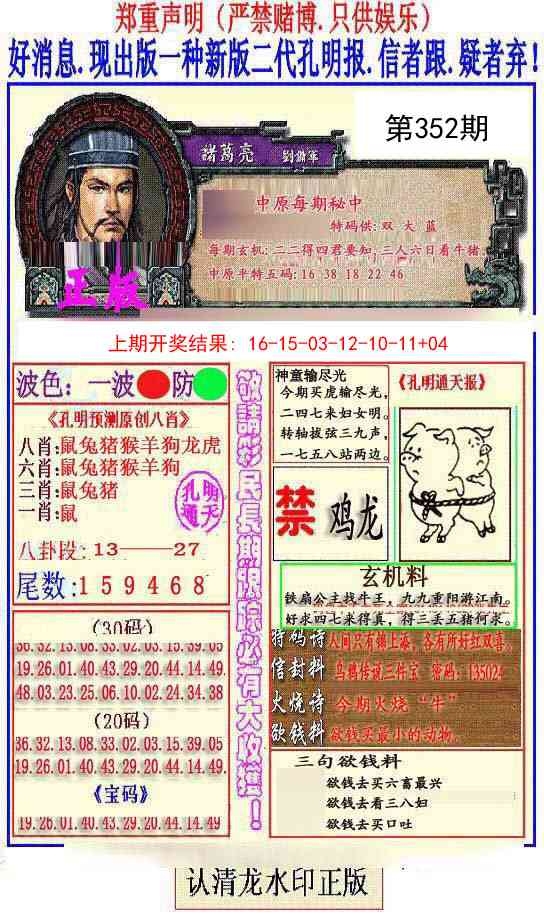 郑重声明（严禁赌博.只供娱乐）
好消息.现出版一种新版二代孔明报.信者跟.疑者弃!
第352期
諸葛亮 劉備軍
中原每期秘中
特码供:双 大 蓝
每期玄机:二二得四君要知,三人六日看牛猪.
中原平特五码:16 38 18 22 46
正版
上期开奖结果: 16-15-03-12-10-11+04
波色: 一波 防
《孔明预测原创八肖》
八肖:鼠兔猪猴羊狗龙虎
六肖:鼠兔猪猴羊狗
三肖:鼠兔猪
一肖:鼠
孔明
通天
八卦段:13——27
尾数:159468
敬請彩民長期跟踪必有大收獲！
神童输尽光
今期买虎输尽光,
二四七来妇女明。
转轴拔弦三九声,
一七五八站两边。
《孔明通天报》
禁 鸡龙
玄机料
铁扇公主找牛王, 九九重阳游江南。
好求四七来得真, 得三丢五猪何求。
(30码)
36.32.13.08.33.02.03.15.39.05
19.26.01.40.43.29.20.44.14.49
48.03.23.25.06.10.02.24.34.38
(20码)
36.32.13.08.33.02.03.15.39.05
19.26.01.40.43.29.20.44.14.49
《宝码》
19.26.01.40.43.29.20.44.14.49
特码诗 人间只有镇上海, 各有所好红双喜。
信封料 乌鸦传说三件宝 密码: 135024
火烧诗 今期火烧“牛”
欲钱料 欲钱买最小的动物。
三句欲钱料
欲钱去买六畜最兴
欲钱去看三八妇
欲钱去买口吐
认清龙水印正版